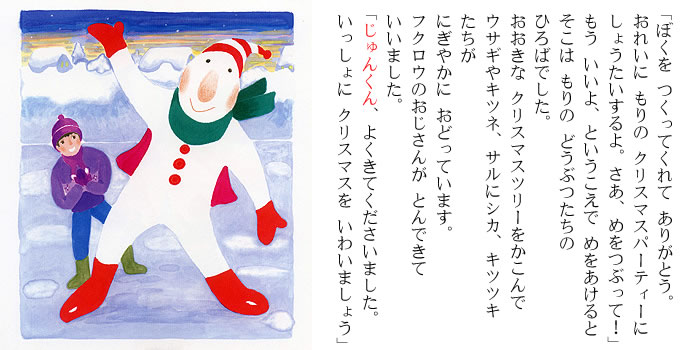 「ぼくを つくってくれて ありがとう。
おれいに もりの クリスマスパーティーに
しょうたいするよ。さあ、めをつぶって！」
もう いいよ、というこえで めをあけると
そこは もりの どうぶつたちの
ひろばでした。
おおきな クリスマスツリーをかこんで
ウサギやキツネ、サルにシカ、キツツキ
たちが
にぎやかに おどっています。
フクロウのおじさんが とんできて
いいました。
「じゅんくん、よくきてくださいました。
いっしょに クリスマスを いわいましょう」